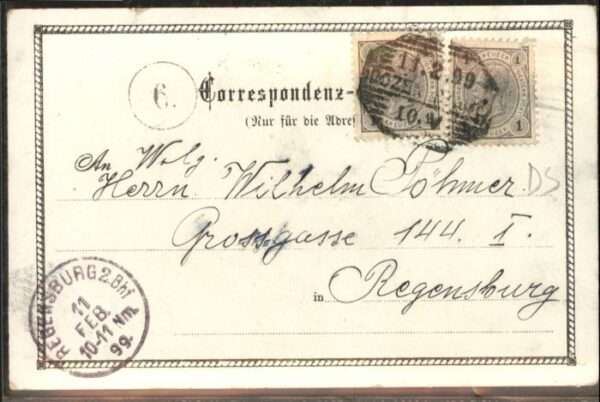 6.
Correspondenz-
(Nur für die Adre
11.2.99
BOZEN
10.
1
1
An Wolg.
Herrn Wilhelm Pöhmer
DS
Grossgasse 144. I.
in Regensburg
REGENSBURG 2.Bhf
11
FEB.
10-11 Nm.
99.